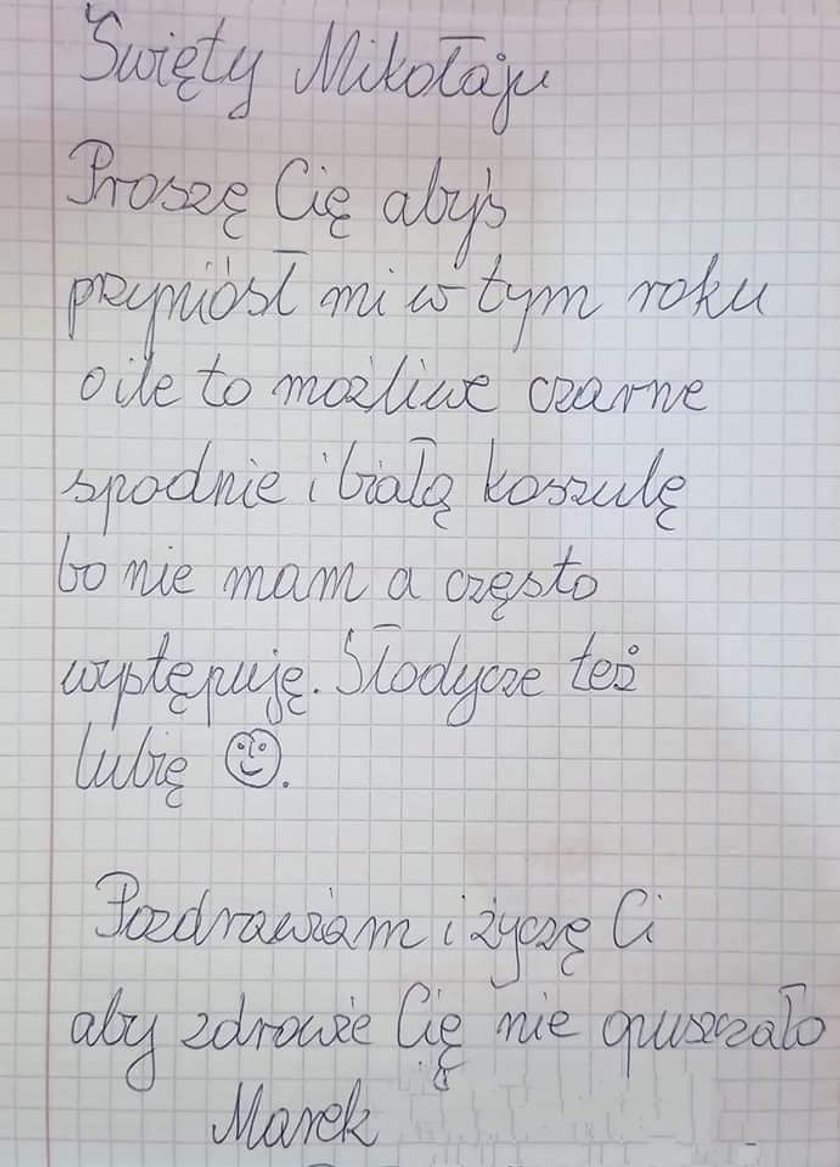 Święty Mikołaju
Proszę Cię abyś
przyniósł mi w tym roku
o ile to możliwe czarne
spodnie i białą koszulę
bo nie mam a często
występuję. Słodycze też
lubię ☺.
Pozdrawiam i życzę Ci
aby zdrowie Cię nie opuszczało
Marek